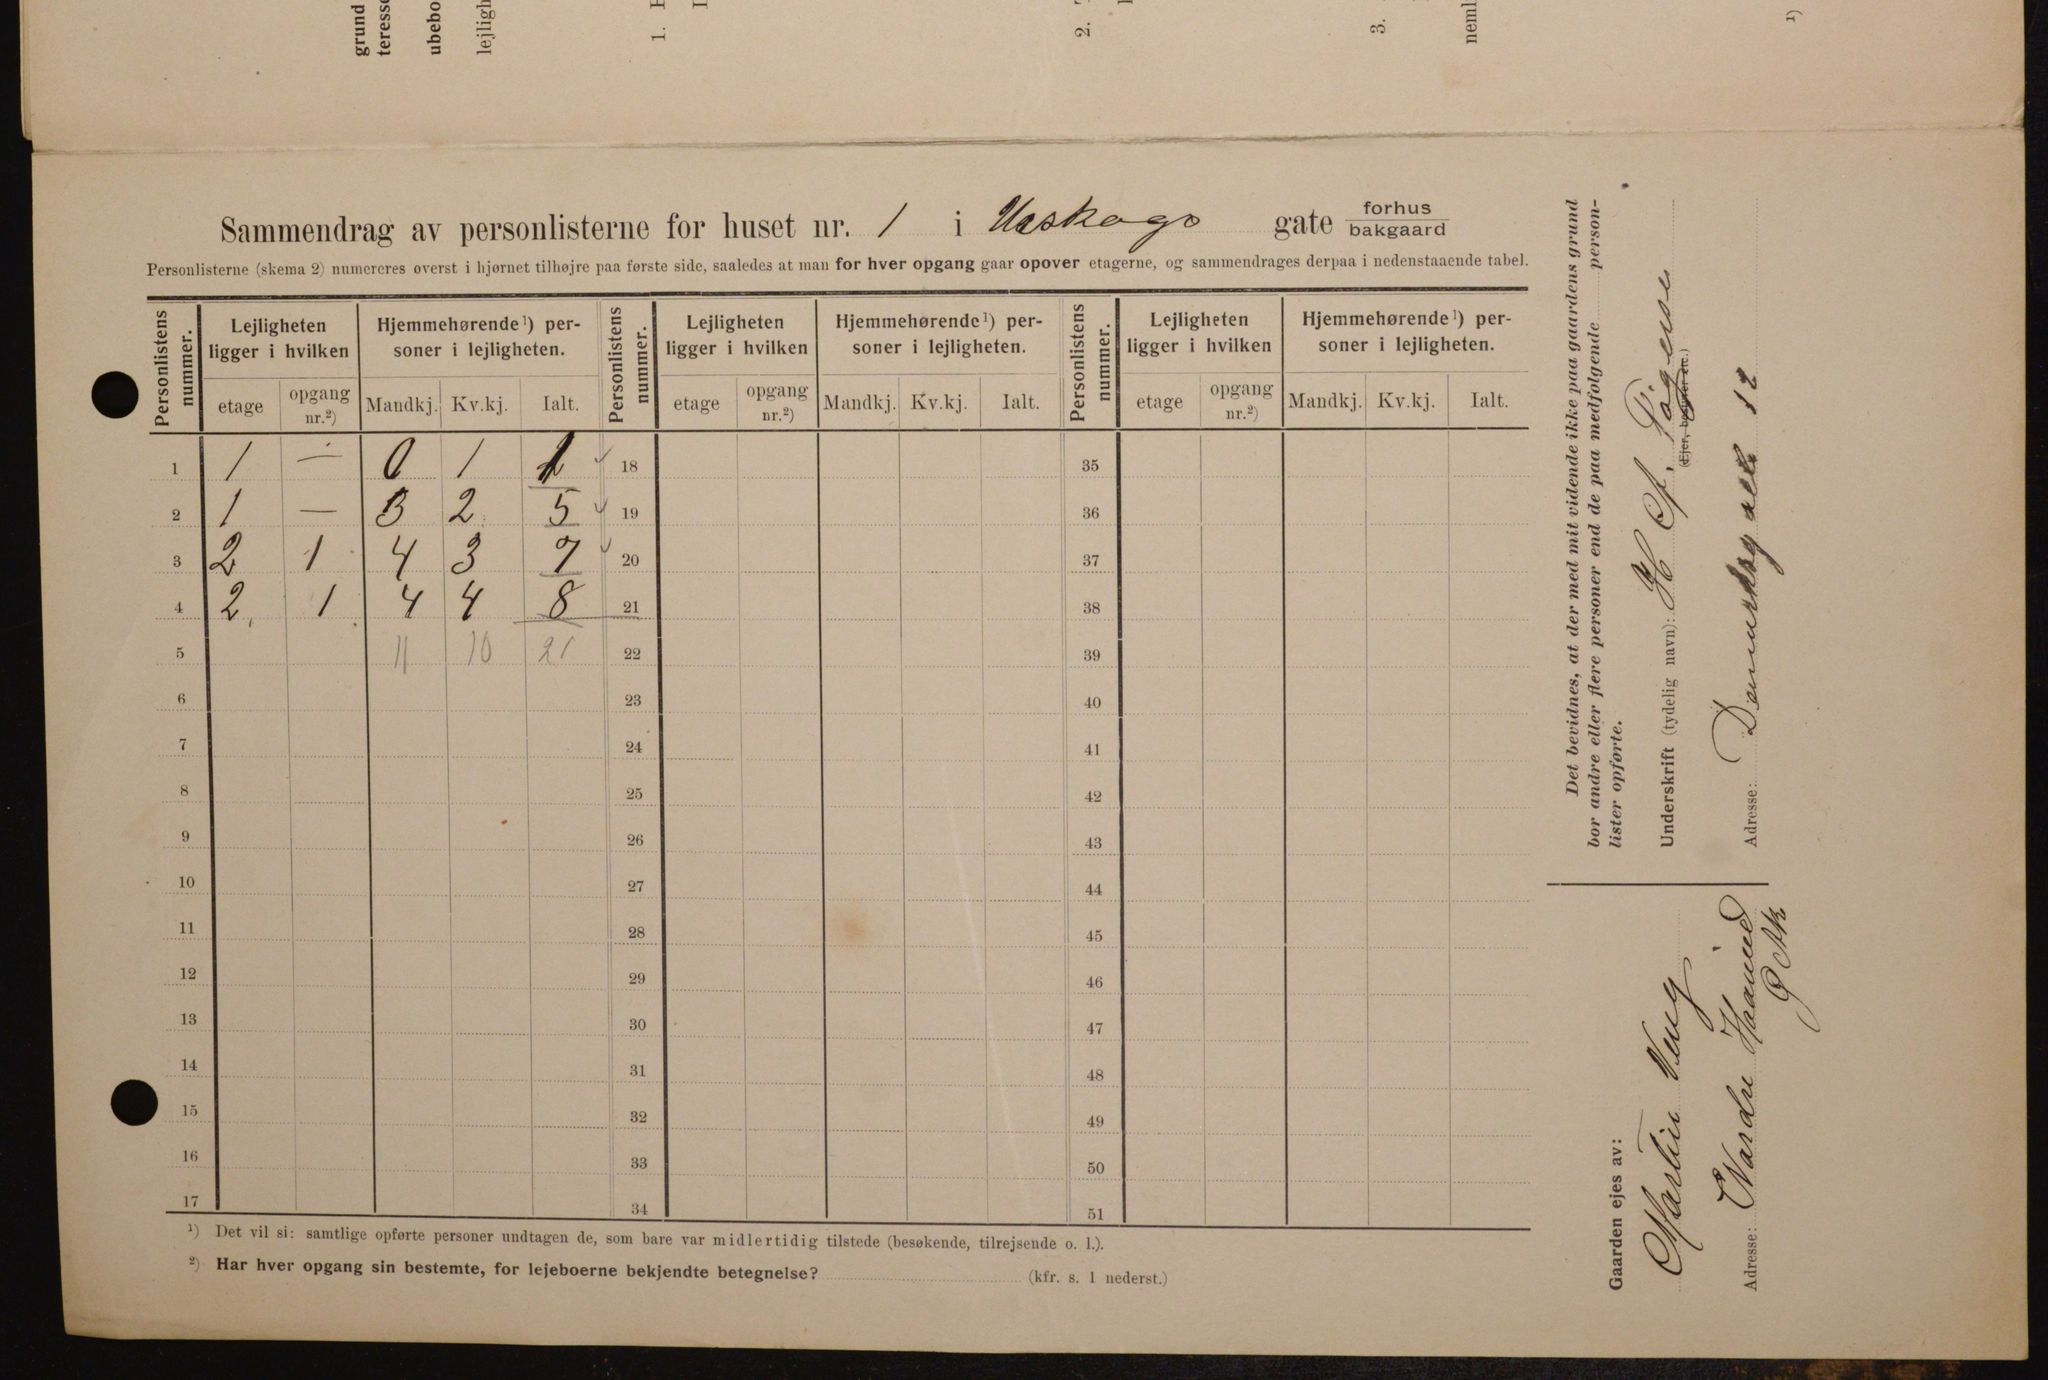 grund
teresse
ubebo
lejligh
1.
2.
3.
neml
1)
Sammendrag av personlisterne for huset nr. 1 i Ueskogs gate forhus
bakgaard
Personlisterne (skema 2) numereres øverst i hjørnet tilhøjre paa første side, saaledes at man for hver opgang gaar opover etagerne, og sammendrages derpaa i nedenstaaende tabel.
Personlistens nummer. Lejligheten ligger i hvilken Hjemmehørende¹) personer i lejligheten. Personlistens nummer. Lejligheten ligger i hvilken Hjemmehørende¹) personer i lejligheten. Personlistens nummer. Lejligheten ligger i hvilken Hjemmehørende¹) personer i lejligheten.
etage opgang nr.²) Mandkj. Kv.kj. Ialt. etage opgang nr.²) Mandkj. Kv.kj. Ialt. etage opgang nr.²) Mandkj. Kv.kj. Ialt.
1 1 — 0 1 1 18 35
2 1 — 3 2 5 19 36
3 2 1 4 3 7 20 37
4 2 1 4 4 8 21 38
5 11 10 21 22 39
6 23 40
7 24 41
8 25 42
9 26 43
10 27 44
11 28 45
12 29 46
13 30 47
14 31 48
15 32 49
16 33 50
17 34 51
¹) Det vil si: samtlige opførte personer undtagen de, som bare var midlertidig tilstede (besøkende, tilrejsende o. l.).
²) Har hver opgang sin bestemte, for lejeboerne bekjendte betegnelse? (kfr. s. 1 nederst.)
Det bevidnes, at der med mit vidende ikke paa gaardens grund
bor andre eller flere personer end de paa medfølgende person-
lister opførte.
Underskrift (tydelig navn): H A.
(Ejer, bestyrer etc.)
Adresse: 12
Gaarden ejes av:
Martin Veug
Adresse: Nardre